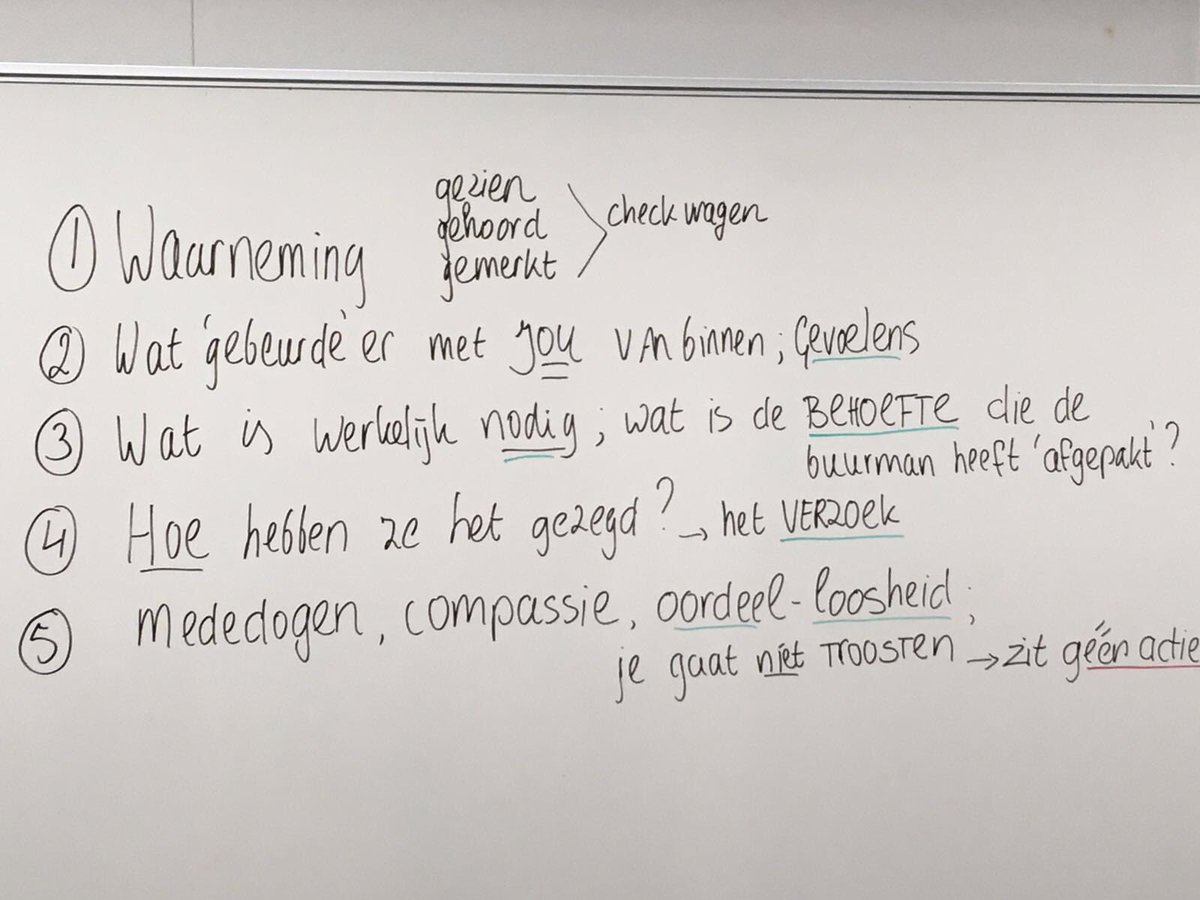 ① Waarneming
gezien
gehoord
gemerkt
check wagen
② Wat 'gebeurde' er met jou van binnen; Gevoelens
③ Wat is werkelijk nodig; wat is de BEHOEFTE die de
buurman heeft 'afgepakt'?
④ Hoe hebben ze het gezegd? → het VERZOEK
⑤ mededogen, compassie, oordeel-loosheid;
je gaat niet TROOSTEN → zit géén actie